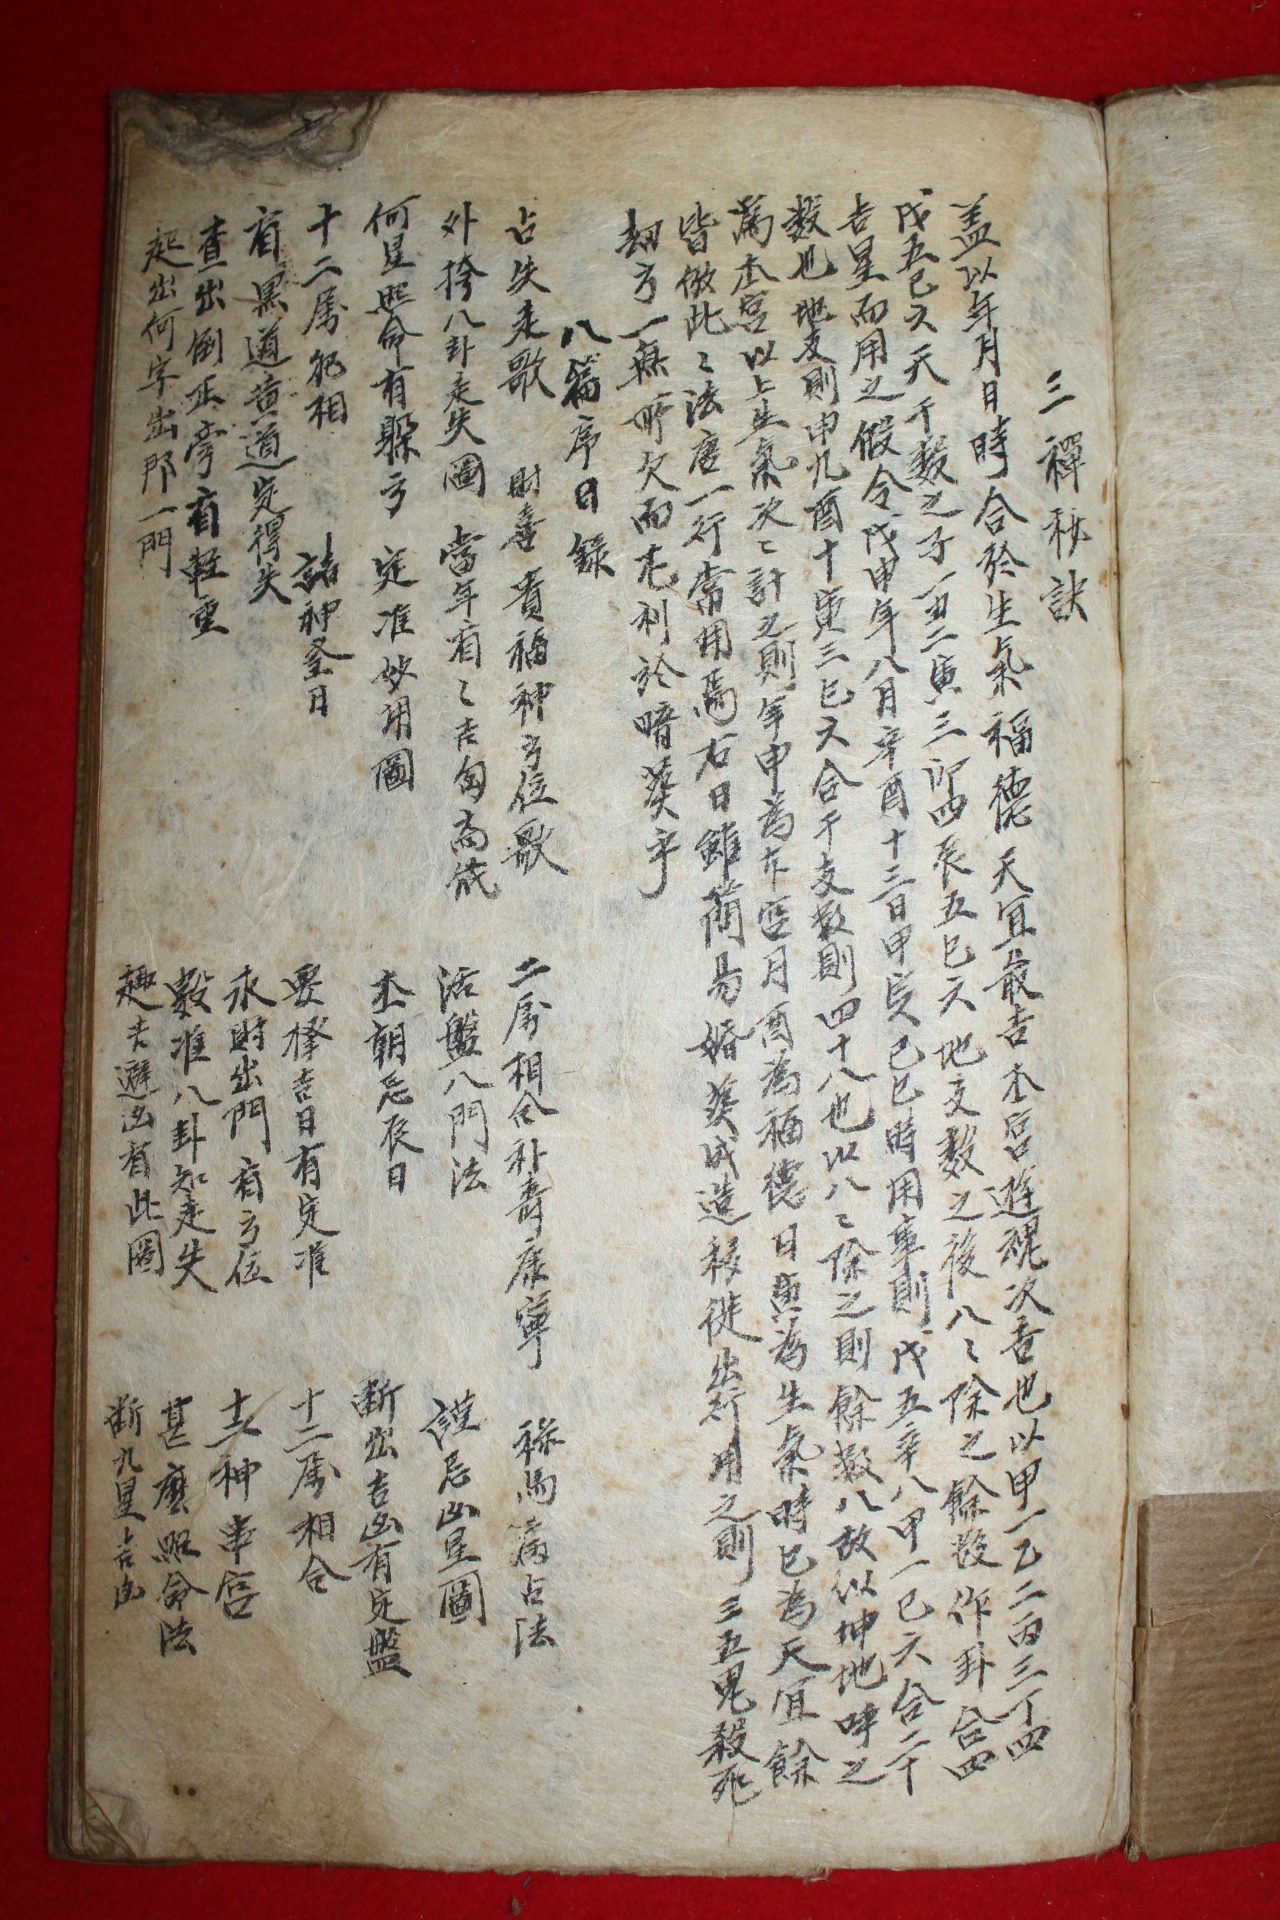 三禪秘訣
盖以年月日時合於生氣福德天宜最吉本宮遊魂次吉也以甲一乙二丙三丁四
戊五己六天干數之子一丑二寅三卯四辰五巳六地支數之後八〻除之餘數作卦合四
吉星而用之假令戊申年八月辛酉十三日甲寅己巳時用事則戊五辛八甲一己六合二十
數也地支則申九酉十寅三巳六合干支數則四十八也以八〻除之則餘數八故以坤地呼之
爲本宮以上生氣次〻計之則年申爲本宮月酉爲福德日寅爲生氣時巳爲天宜餘
皆倣此〻法唐一行常用焉右日雖簡易婚葬成造移徙出行用之則三五鬼殺死
刼方一無所欠而尤利於暗葬乎
八篇序目錄
占失走歌 財喜貴福神方位歌 二属相合补壽康寧 祿馬病占法
外挎八卦走失圖 當年有〻吉凶高低 活盤八門法 謹忌凶星圖
何星照命有躲方 定准妙用圖 本朝忌辰日 断出吉凶有定盤
十二属犯相 諸神登日 要擇吉日有定准 十二属相合
有黑道黄道定得失 求財出門有方位 十二神串宮
查出倒正字有輕重 數准八卦知走失 甚麽照命法
起出何字出那一門 趣吉避凶有此圖 断九星吉凶